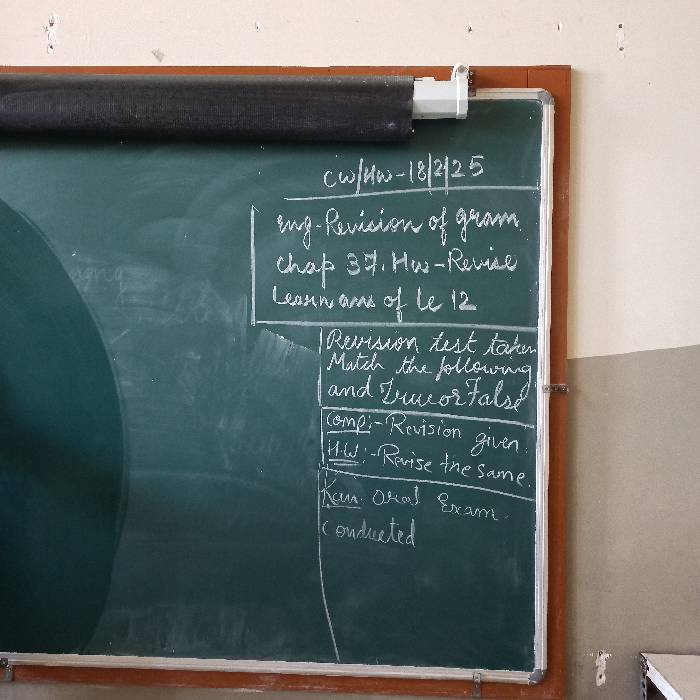 CW/HW-18/2/25
Eng-Revision of gram
chap 37. Hw-Revise
Learn ans of Le 12
Revision test taken
Match the following
and True or False
Comp:-Revision given.
H.W:-Revise the same.
Kan. Oral Exam
Conducted